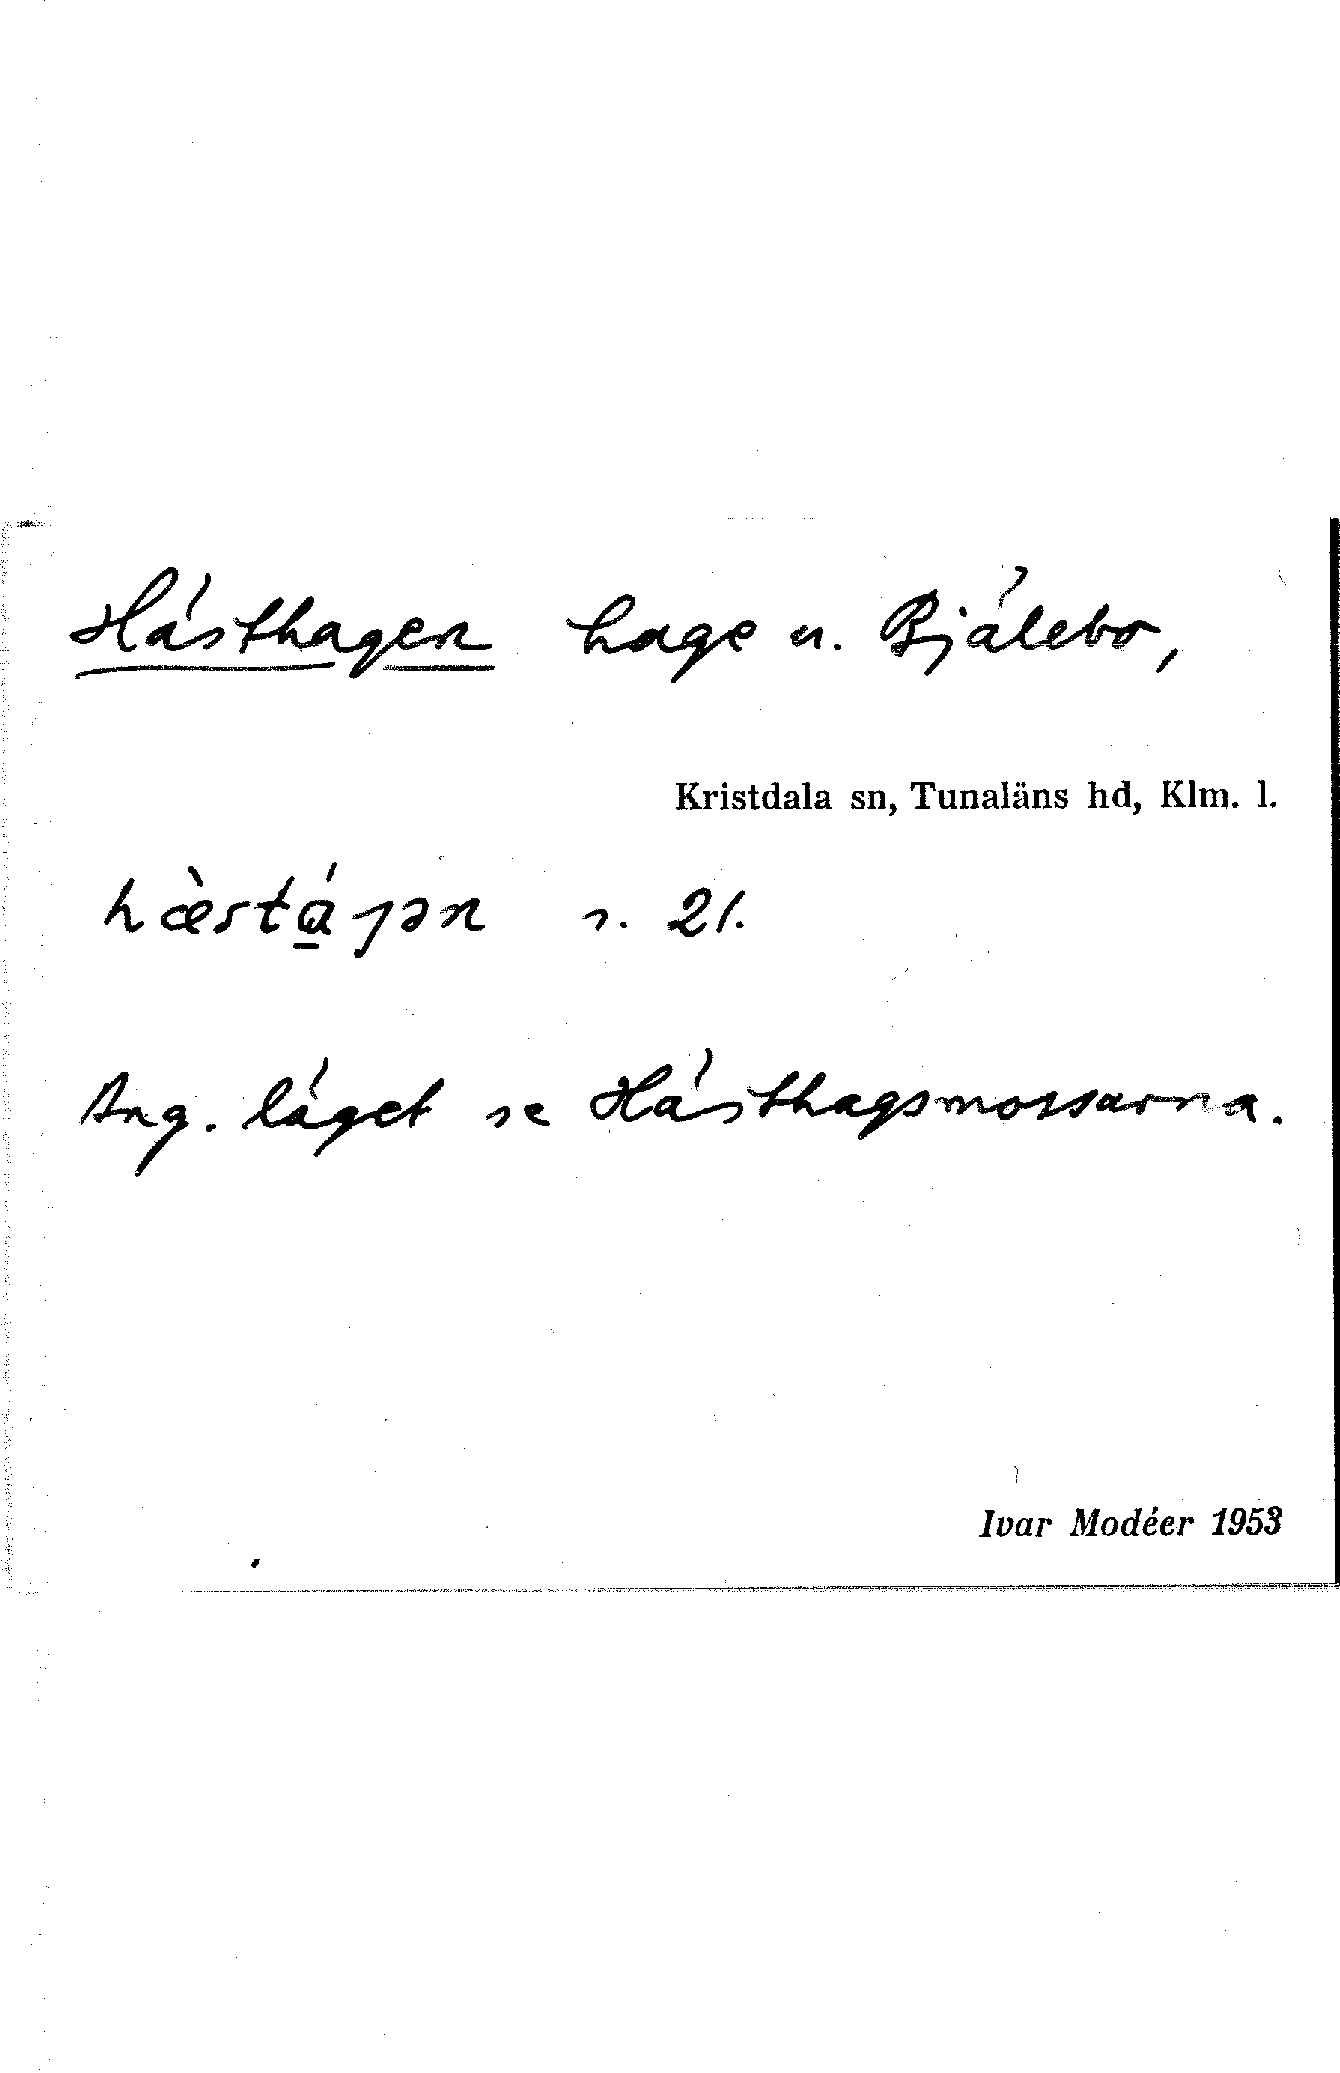 Hästhagen hage u. Bjälebo,
Kristdala sn, Tunaläns hd, Klm. l.
hæ̀stɑ̱́ɟən s. 21.
Ang. läget se Hästhagsmossarna.
Ivar Modéer 1953